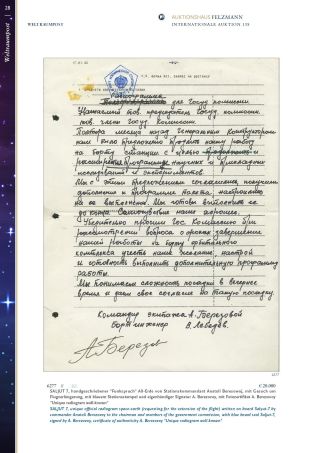 28
Weltraumpost
WELTRAUMPOST
AUKTIONSHAUS FELZMANN
INTERNATIONALE AUKTION 159
Радиограмма
для Госуд. комиссии
Уважаемый тов. председатель Госуд. комиссии
тов. члены Госуд. Комиссии.
Полтора месяца назад Генеральным Конструктором
нам было предложено продлить нашу работу
на борту станции с целью
расширения программы научных и прикладных
исследований и экспериментов
Мы с этим предложением согласились, изучили
дополнения к программе полета, настроились
на ее выполнение. Мы готовы выполнить ее
до конца. Самочувствие наше хорошее.
Убедительно просим Гос. Комиссию при
рассмотрении вопроса о сроках завершения
нашей работы на борту орбитального
комплекса учесть наше желание, настрой
и готовность выполнить дополнительную программу
работы.
Мы понимаем сложность посадки в вечернее
время и даем свое согласие на такую посадку.
Командир экипажа А. Березовой
Борт инженер В. Лебедев.
А. Берез
6277
6277
€ 20.000
SALJUT 7, handgeschriebener "Funkspruch" All-Erde von Stationskommandant Anatoli Beresowoj, mit Gesuch um
Flugverlängerung, mit blauem Stationsstempel und eigenhändiger Signatur A. Beresowoj, mit Fotozertifikat A. Beresowoj
"Unique radiogram well-known"
SALJUT 7, unique official radiogram space-earth (requesting for the extension of the flight) written on board Salyut-7 by
commander Anatoli Beresowoj to the chairman and members of the government commission, with blue board seal Saljut-7,
signed by A. Beresowoj, certificate of authenticity A. Beresowoj "Unique radiogram well known"